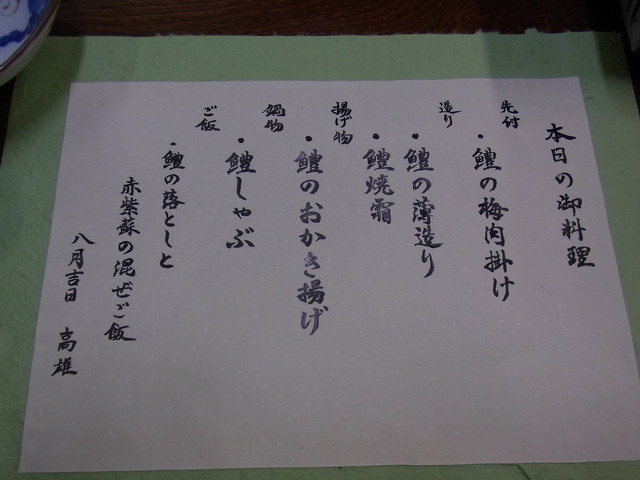 本日の御料理
先付
・鱧の梅肉掛け
造り
・鱧の薄造り
・鱧焼霜
揚げ物
・鱧のおかき揚げ
鍋物
・鱧しゃぶ
ご飯
・鱧の落としと
赤紫蘇の混ぜご飯
八月吉日 高雄